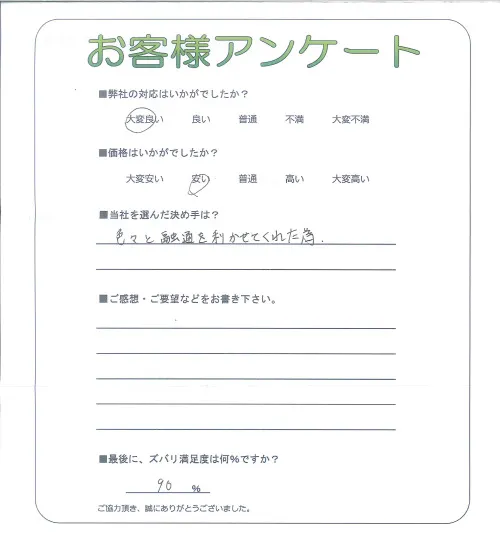 お客様アンケート
■弊社の対応はいかがでしたか？
大変良い 良い 普通 不満 大変不満
■価格はいかがでしたか？
大変安い 安い 普通 高い 大変高い
■当社を選んだ決め手は？
色々と融通を利かせてくれた為.
■ご感想・ご要望などをお書き下さい。
■最後に、ズバリ満足度は何%ですか？
90 %
ご協力頂き、誠にありがとうございました。